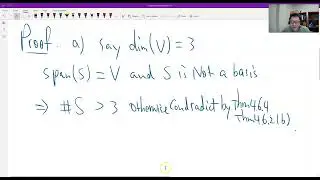 Proof. a) Say dim(V) = 3
span(S) = V and S is Not a basis
⇒ #S > 3 otherwise contradict by Thm 46.4
Thm 46.2 (b)